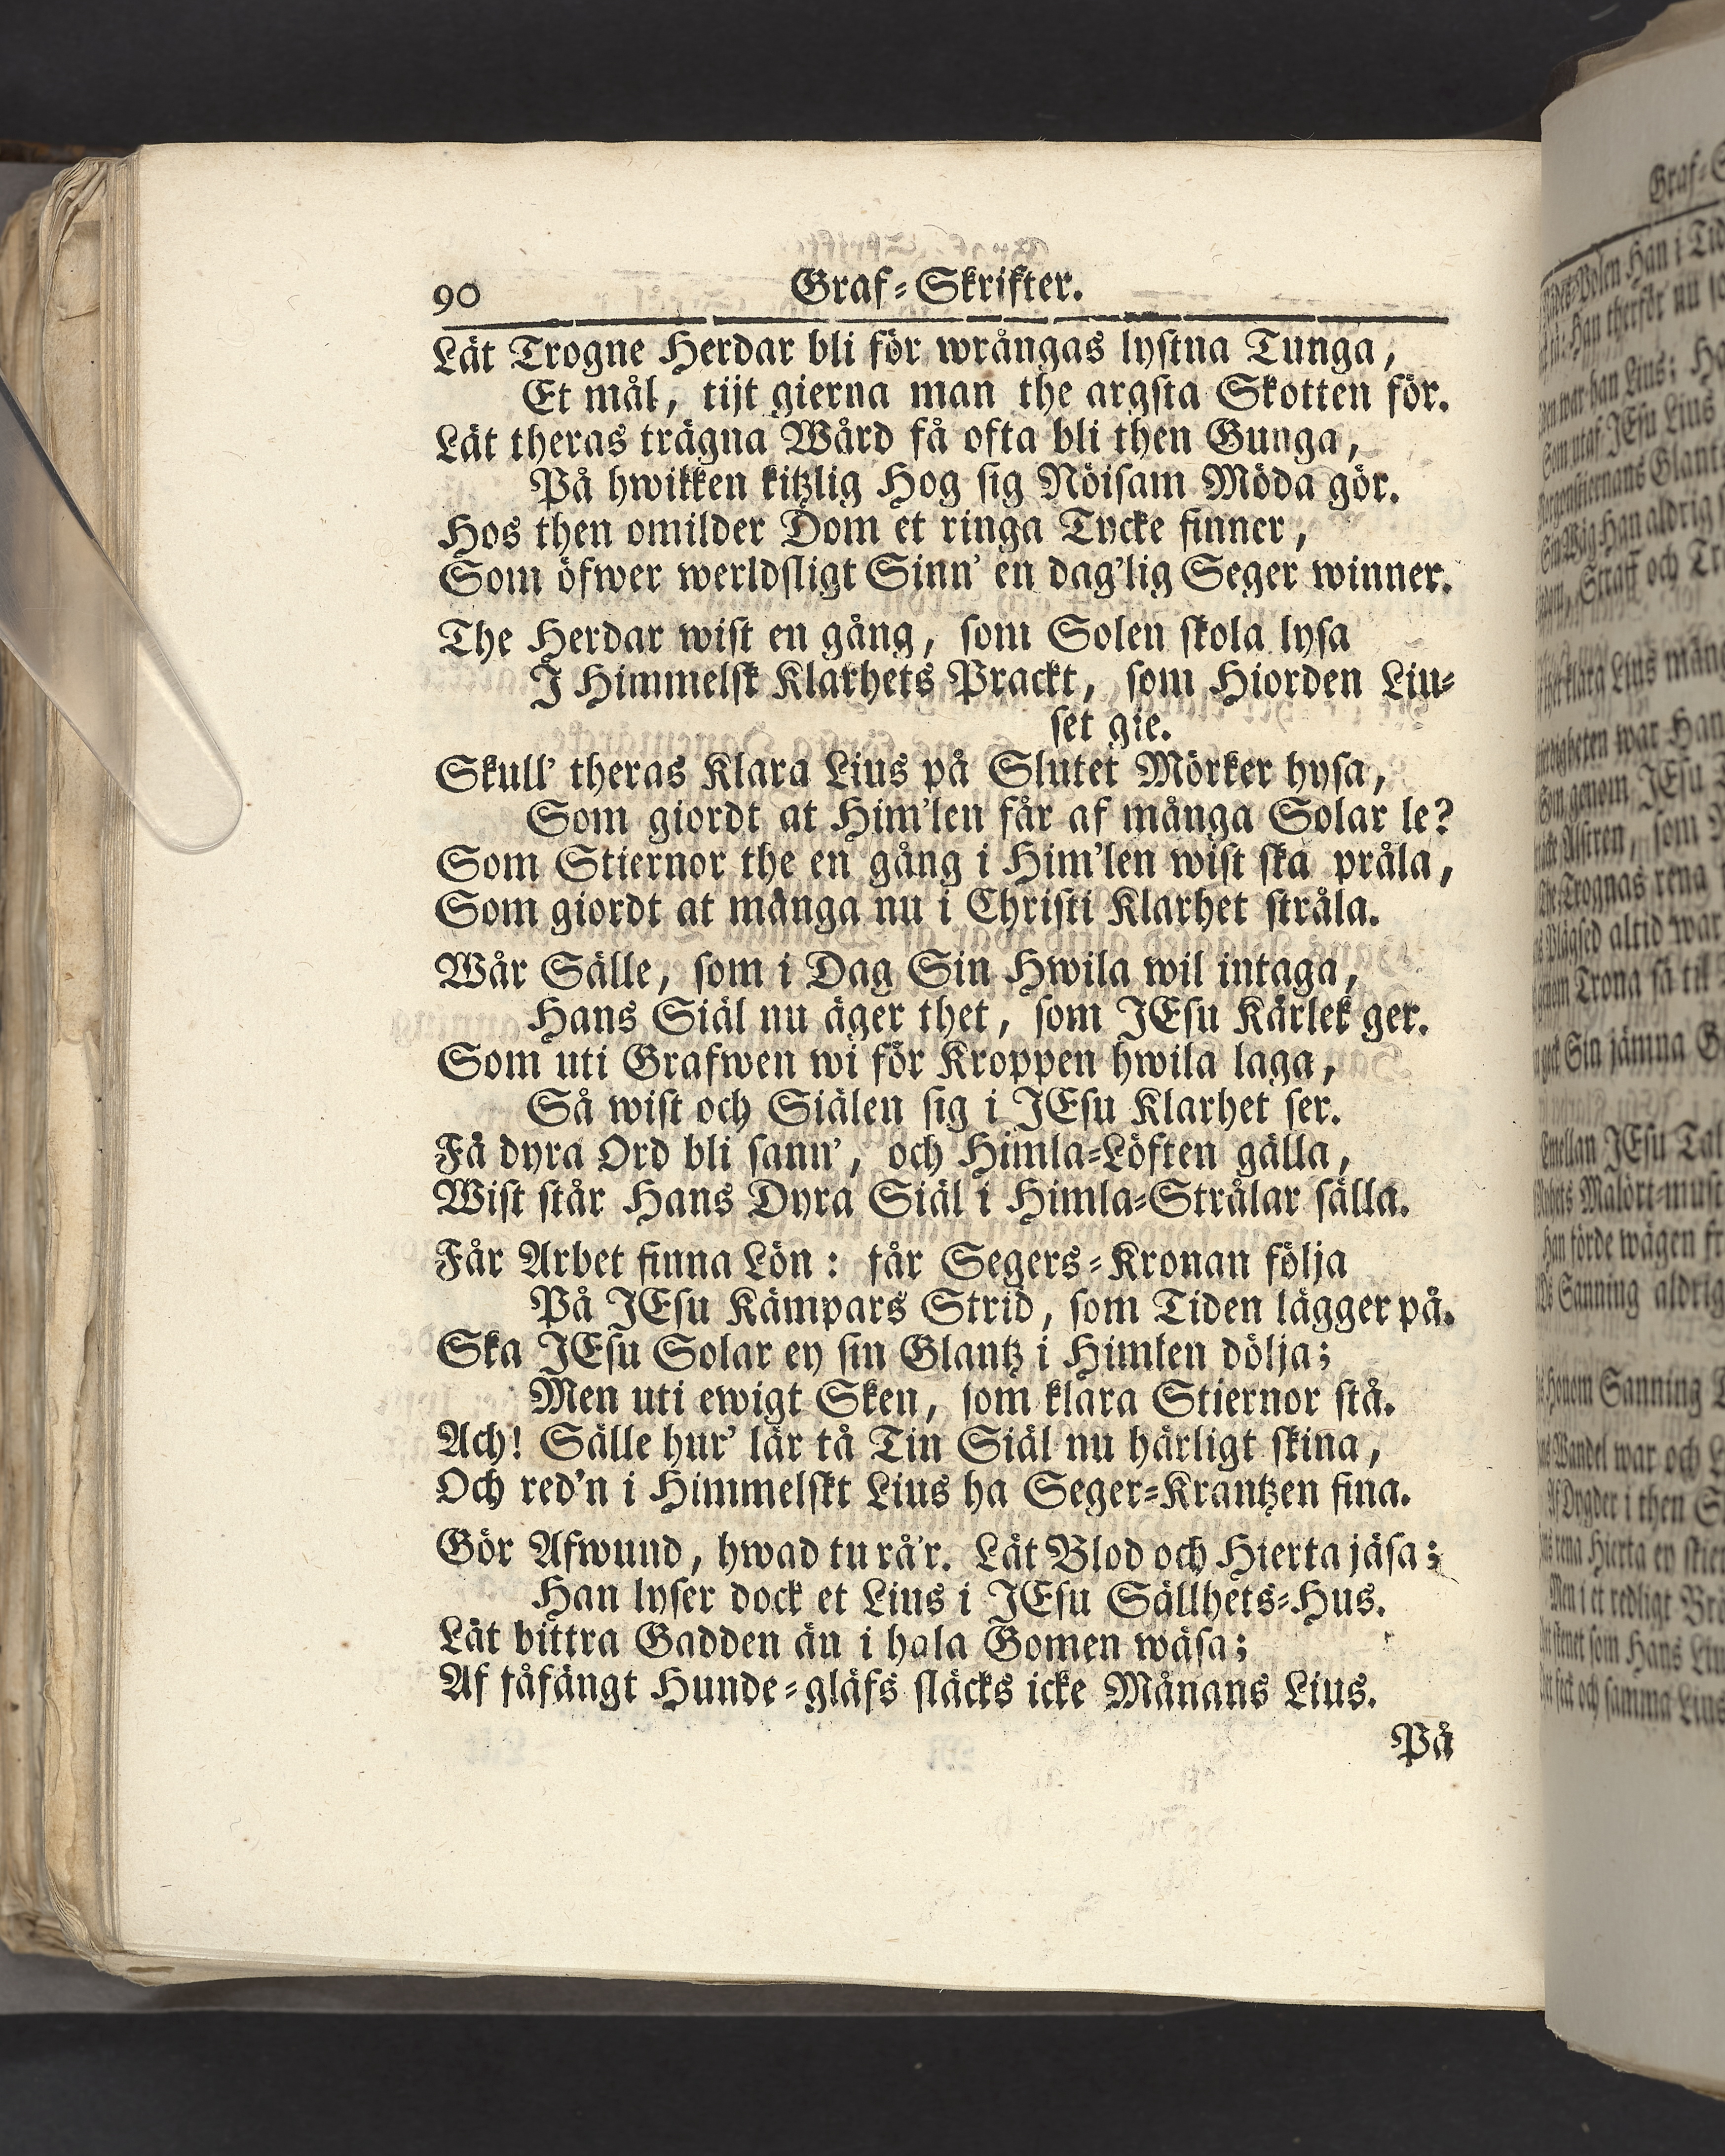 90 Graf-Skrifter.
Lät Trogne Herdar bli för wrångas lystna Tunga,
Et mål, tijt gierna man the argsta Skotten för.
Lät theras trägna Wård få ofta bli then Gunga,
På hwikken kitzlig Hog sig Nöisam Möda gör.
Hos then omilder Dom et ringa Tycke finner,
Som öfwer werldsligt Sinn' en dag'lig Seger winner.
The Herdar wist en gång, som Solen skola lysa
I Himmelsk Klarhets Prackt, som Hiorden Liu-
set gie.
Skull' theras Klara Lius på Slutet Mörker hysa,
Som giordt at Him'len får af många Solar le?
Som Stiernor the en gång i Him'len wist ska pråla,
Som giordt at många nu i Christi Klarhet stråla.
Wår Sälle, som i Dag Sin Hwila wil intaga,
Hans Siäl nu äger thet, som JEsu Kärlek ger.
Som uti Grafwen wi för Kroppen hwila laga,
Så wist och Siälen sig i JEsu Klarhet ser.
Få dyra Ord bli sann', och Himla-Löften gälla,
Wist står Hans Dyra Siäl i Himla-Strålar sälla.
Får Arbet finna Lön: får Segers-Kronan följa
På JEsu Kämpars Strid, som Tiden lägger på.
Ska JEsu Solar ey sin Glantz i Himlen dölja;
Men uti ewigt Sken, som klara Stiernor stå.
Ach! Sälle hur' lär tå Tin Siäl nu härligt skina,
Och red'n i Himmelskt Lius ha Seger-Krantzen fina.
Gör Afwund, hwad tu rå'r. Lät Blod och Hierta jäsa;
Han lyser dock et Lius i JEsu Sällhets-Hus.
Lät bittra Gadden än i hala Gomen wäsa;
Af fåfängt Hunde-gläfs släcks icke Månans Lius.
På